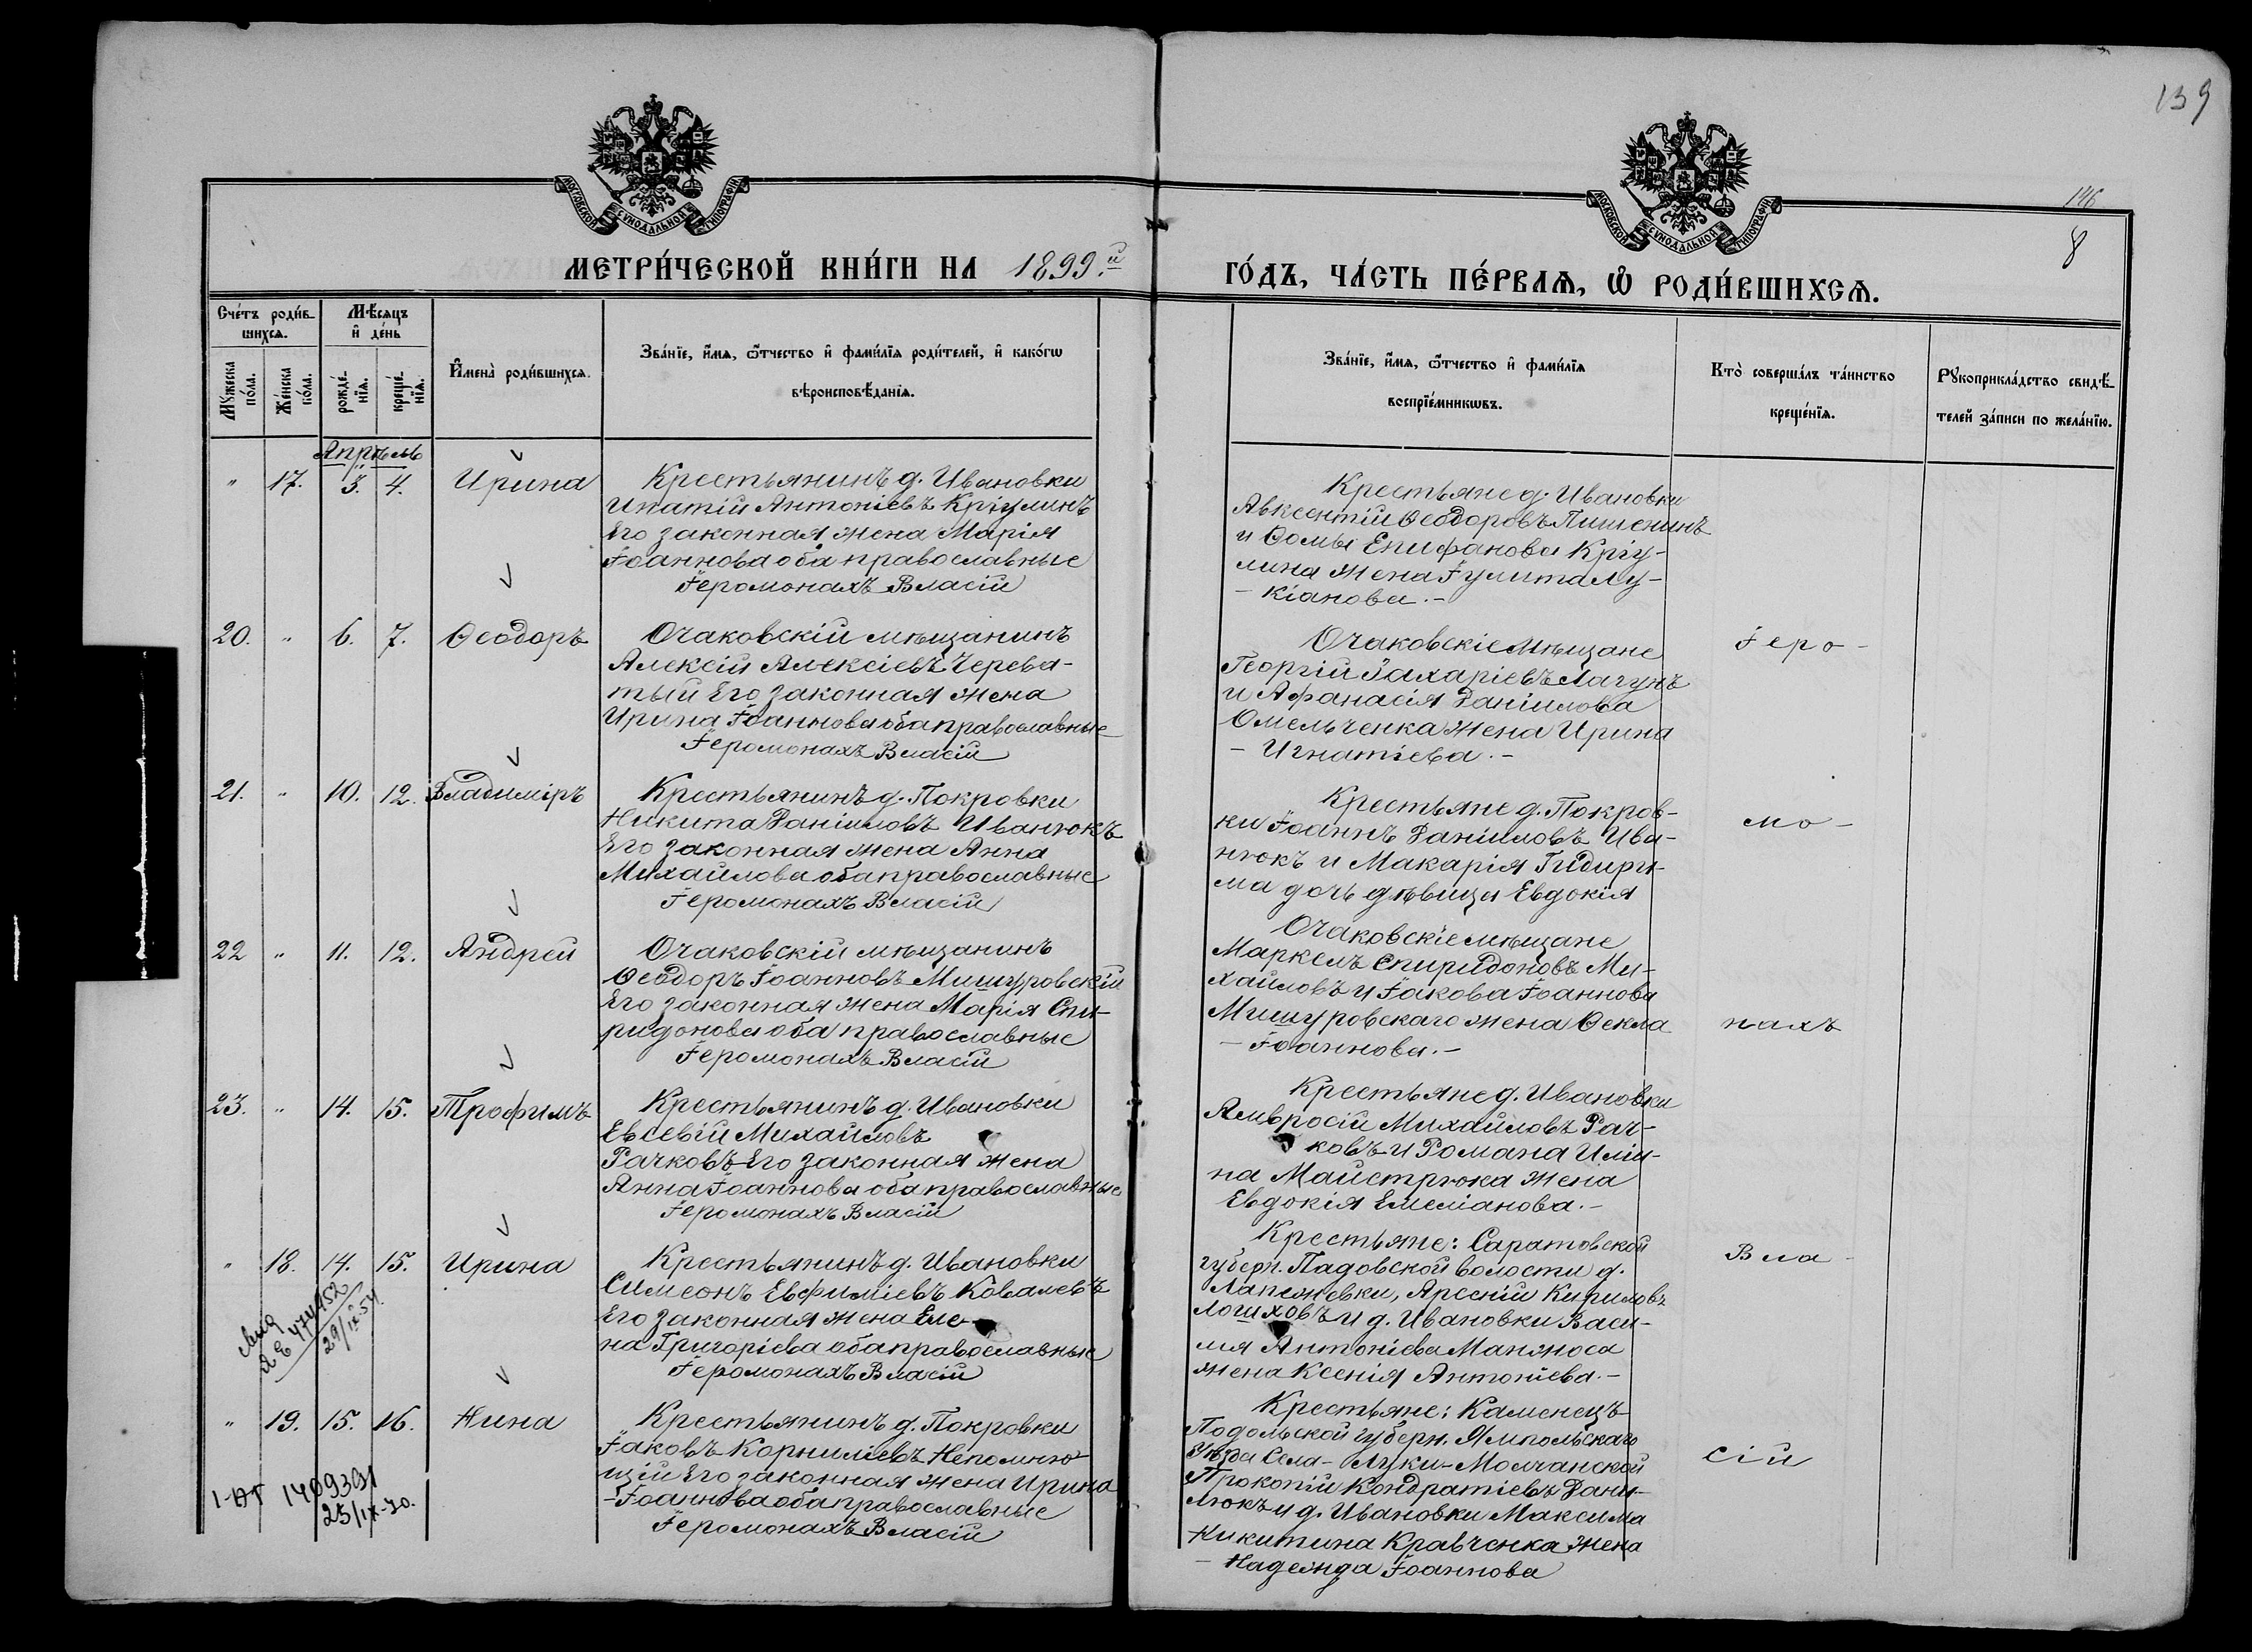 139
146
8
МОСКОВСКОЙ СѴНОДАЛЬНОЙ ТИПОГРАФІИ
МОСКОВСКОЙ СѴНОДАЛЬНОЙ ТИПОГРАФІИ
МЕТРИ́ЧЕСКОЙ КНИ́ГИ НА 1899.й
ГО́ДЪ, ЧА́СТЬ ПЕ́РВАѦ, Ѡ҆ РОДИ́ВШИХСѦ.
Сче́тъ роди́в-
шихсѧ.
Мꙋ́жеска по́ла.
Же́нска по́ла.
Мѣ́сѧцъ
и҆ де́нь
рожде́-
нїѧ.
креще́-
нїѧ.
И҆мена̀ роди́вшихсѧ.
Зва́нїе, и҆́мѧ, ѻ҆́тчество и҆ фами́лїѧ роди́телей, и҆ како́гѡ
вѣроисповѣ́данїѧ.
Зва́нїе, и҆́мѧ, ѻ҆́тчество и҆ фами́лїѧ
воспрїе́мникѡвъ.
Кто̀ соверша́лъ та́инство
креще́нїѧ.
Рꙋкоприкла́дство свидѣ́-
телей за́писи по жела́нїю.
Апрѣль
" 17. 3. 4. Ирина
Крестьянинъ д. Ивановки
Ипатій Антоніевъ Кріулинъ
Его законная жена Марія
Іоаннова оба православные
Іеромонахъ Власій
Крестьяне д. Ивановки
Авксентій Ѳеодоровъ Пишенинъ
и Ѳомы Епифанова Кріу-
лина жена Іулита Лу-
- кіанова. -
20. " 6. 7. Ѳеодоръ
Очаковскій мѣщанинъ
Алексій Алексіевъ Черева-
тый Его законная жена
Ирина Іоаннова оба православные
Іеромонахъ Власій
Очаковскіе мѣщане
Георгій Захаріевъ Лагунъ
и Афанасія Даніилова
Омельченка жена Ирина
- Игнатіева. -
Іеро-
21. " 10. 12. Владиміръ
Крестьянинъ д. Покровки
Никита Даніиловъ Иванюкъ
Его законная жена Анна
Михайлова оба православные
Іеромонахъ Власій
Крестьяне д. Покров-
ки Іоаннъ Даніиловъ Ива-
нюкъ и Макарія Гидири-
ма дочь дѣвица Евдокія
мо-
22 " 11. 12. Андрей
Очаковскій мѣщанинъ
Ѳеодоръ Іоанновъ Мишуровскій
Его законная жена Марія Спи-
ридонова оба православные
Іеромонахъ Власій
Очаковскіе мѣщане
Маркелъ Спиридоновъ Ми-
хайловъ и Іакова Іоаннова
Мишуровскаго жена Ѳекла
- Іоаннова. -
нахъ
23. " 14. 15. Трофимъ
Крестьянинъ д. Ивановки
Евсевій Михайловъ
Рачковъ Его законная жена
Анна Іоаннова оба православные
Іеромонахъ Власій
Крестьяне д. Ивановки
Амвросій Михайловъ Рач-
ковъ и Романа Иліи-
на Майстрюка жена
Евдокія Емеліанова. -
" 18. 14. 15. Ирина
Крестьянинъ д. Ивановки
Симеонъ Евфиміевъ Ковалевъ
Его законная жена Еле-
на Григоріева оба православные
Іеромонахъ Власій
Крестьяне: Саратовской
губерн. Падовской волости д.
Арсеній Кириловъ
Лошховъ и д. Ивановки Васи-
лія Антоніева Маножоса
жена Ксенія Антоніева. -
Вла-
474452
29/IX 54
" 19. 15. 16. Нина
Крестьянинъ д. Покровки
Іаковъ Корниліевъ Непомню-
щій Его законная жена Ирина
- Іоаннова оба православные
Іеромонахъ Власій
Крестьяне: Каменецъ-
Подольской губерн. Ямпольскаго
уѣзда Села-Луки-Молчанской
Прокопій Кондратіевъ Дани-
люкъ и д. Ивановки Максима
Никитина Кравченка жена
- Надежда Іоаннова
сій
1409391
25/IX-70.